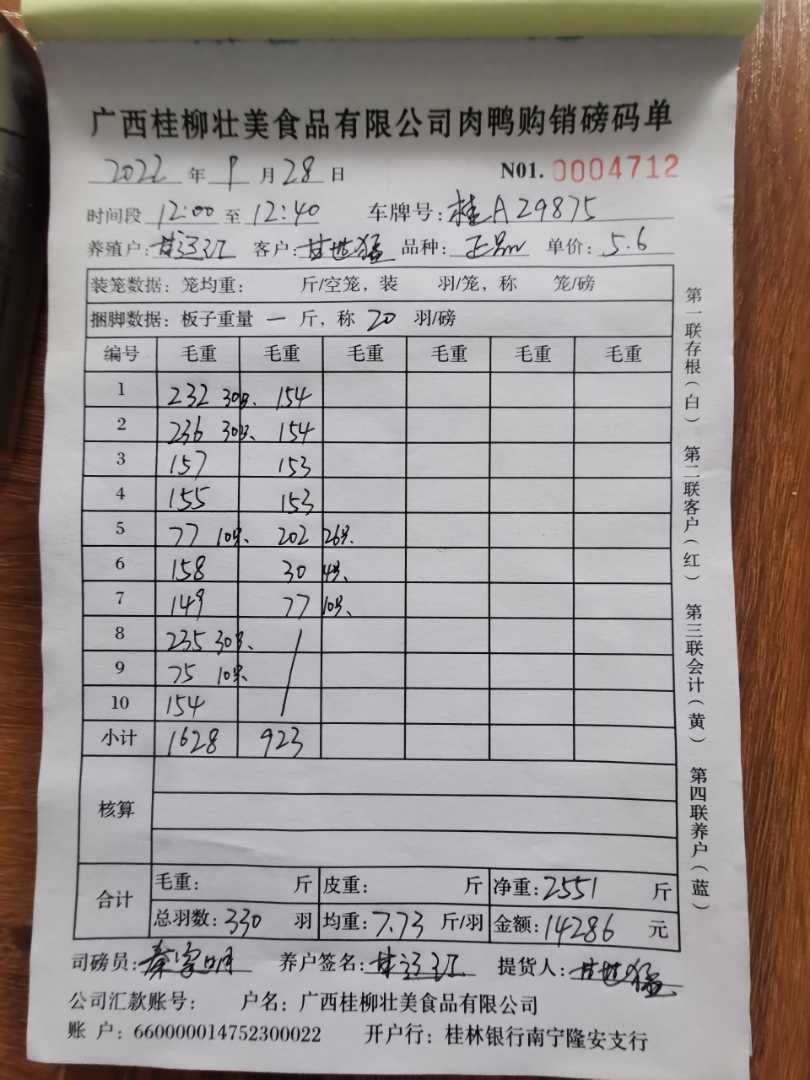 广西桂柳壮美食品有限公司肉鸭购销磅码单
2022 年 9 月 28 日 N01. 0004712
时间段 12:00 至 12:40 车牌号: 桂A29875
养殖户: 甘 客户: 甘世猛 品种: 正 单价: 5.6
装笼数据: 笼均重: 斤/空笼, 装 羽/笼, 称 笼/磅
捆脚数据: 板子重量 一 斤, 称 20 羽/磅
编号 毛重 毛重 毛重 毛重 毛重 毛重
1 232 30只、 154
2 236 30只、 154
3 157 153
4 155 153
5 77 10只、 202 26只、
6 158 30 4只、
7 149 77 10只、
8 235 30只、 /
9 75 10只、
10 154
小计 1628 923
核算
合计 毛重: 斤 皮重: 斤 净重: 2551 斤
总羽数: 330 羽 均重: 7.73 斤/羽 金额: 14286 元
司磅员: 秦家明 养户签名: 甘 提货人: 甘世猛
公司汇款账号: 户名: 广西桂柳壮美食品有限公司
账 户: 660000014752300022 开户行: 桂林银行南宁隆安支行
第一联存根(白) 第二联客户(红) 第三联会计(黄) 第四联养户(蓝)